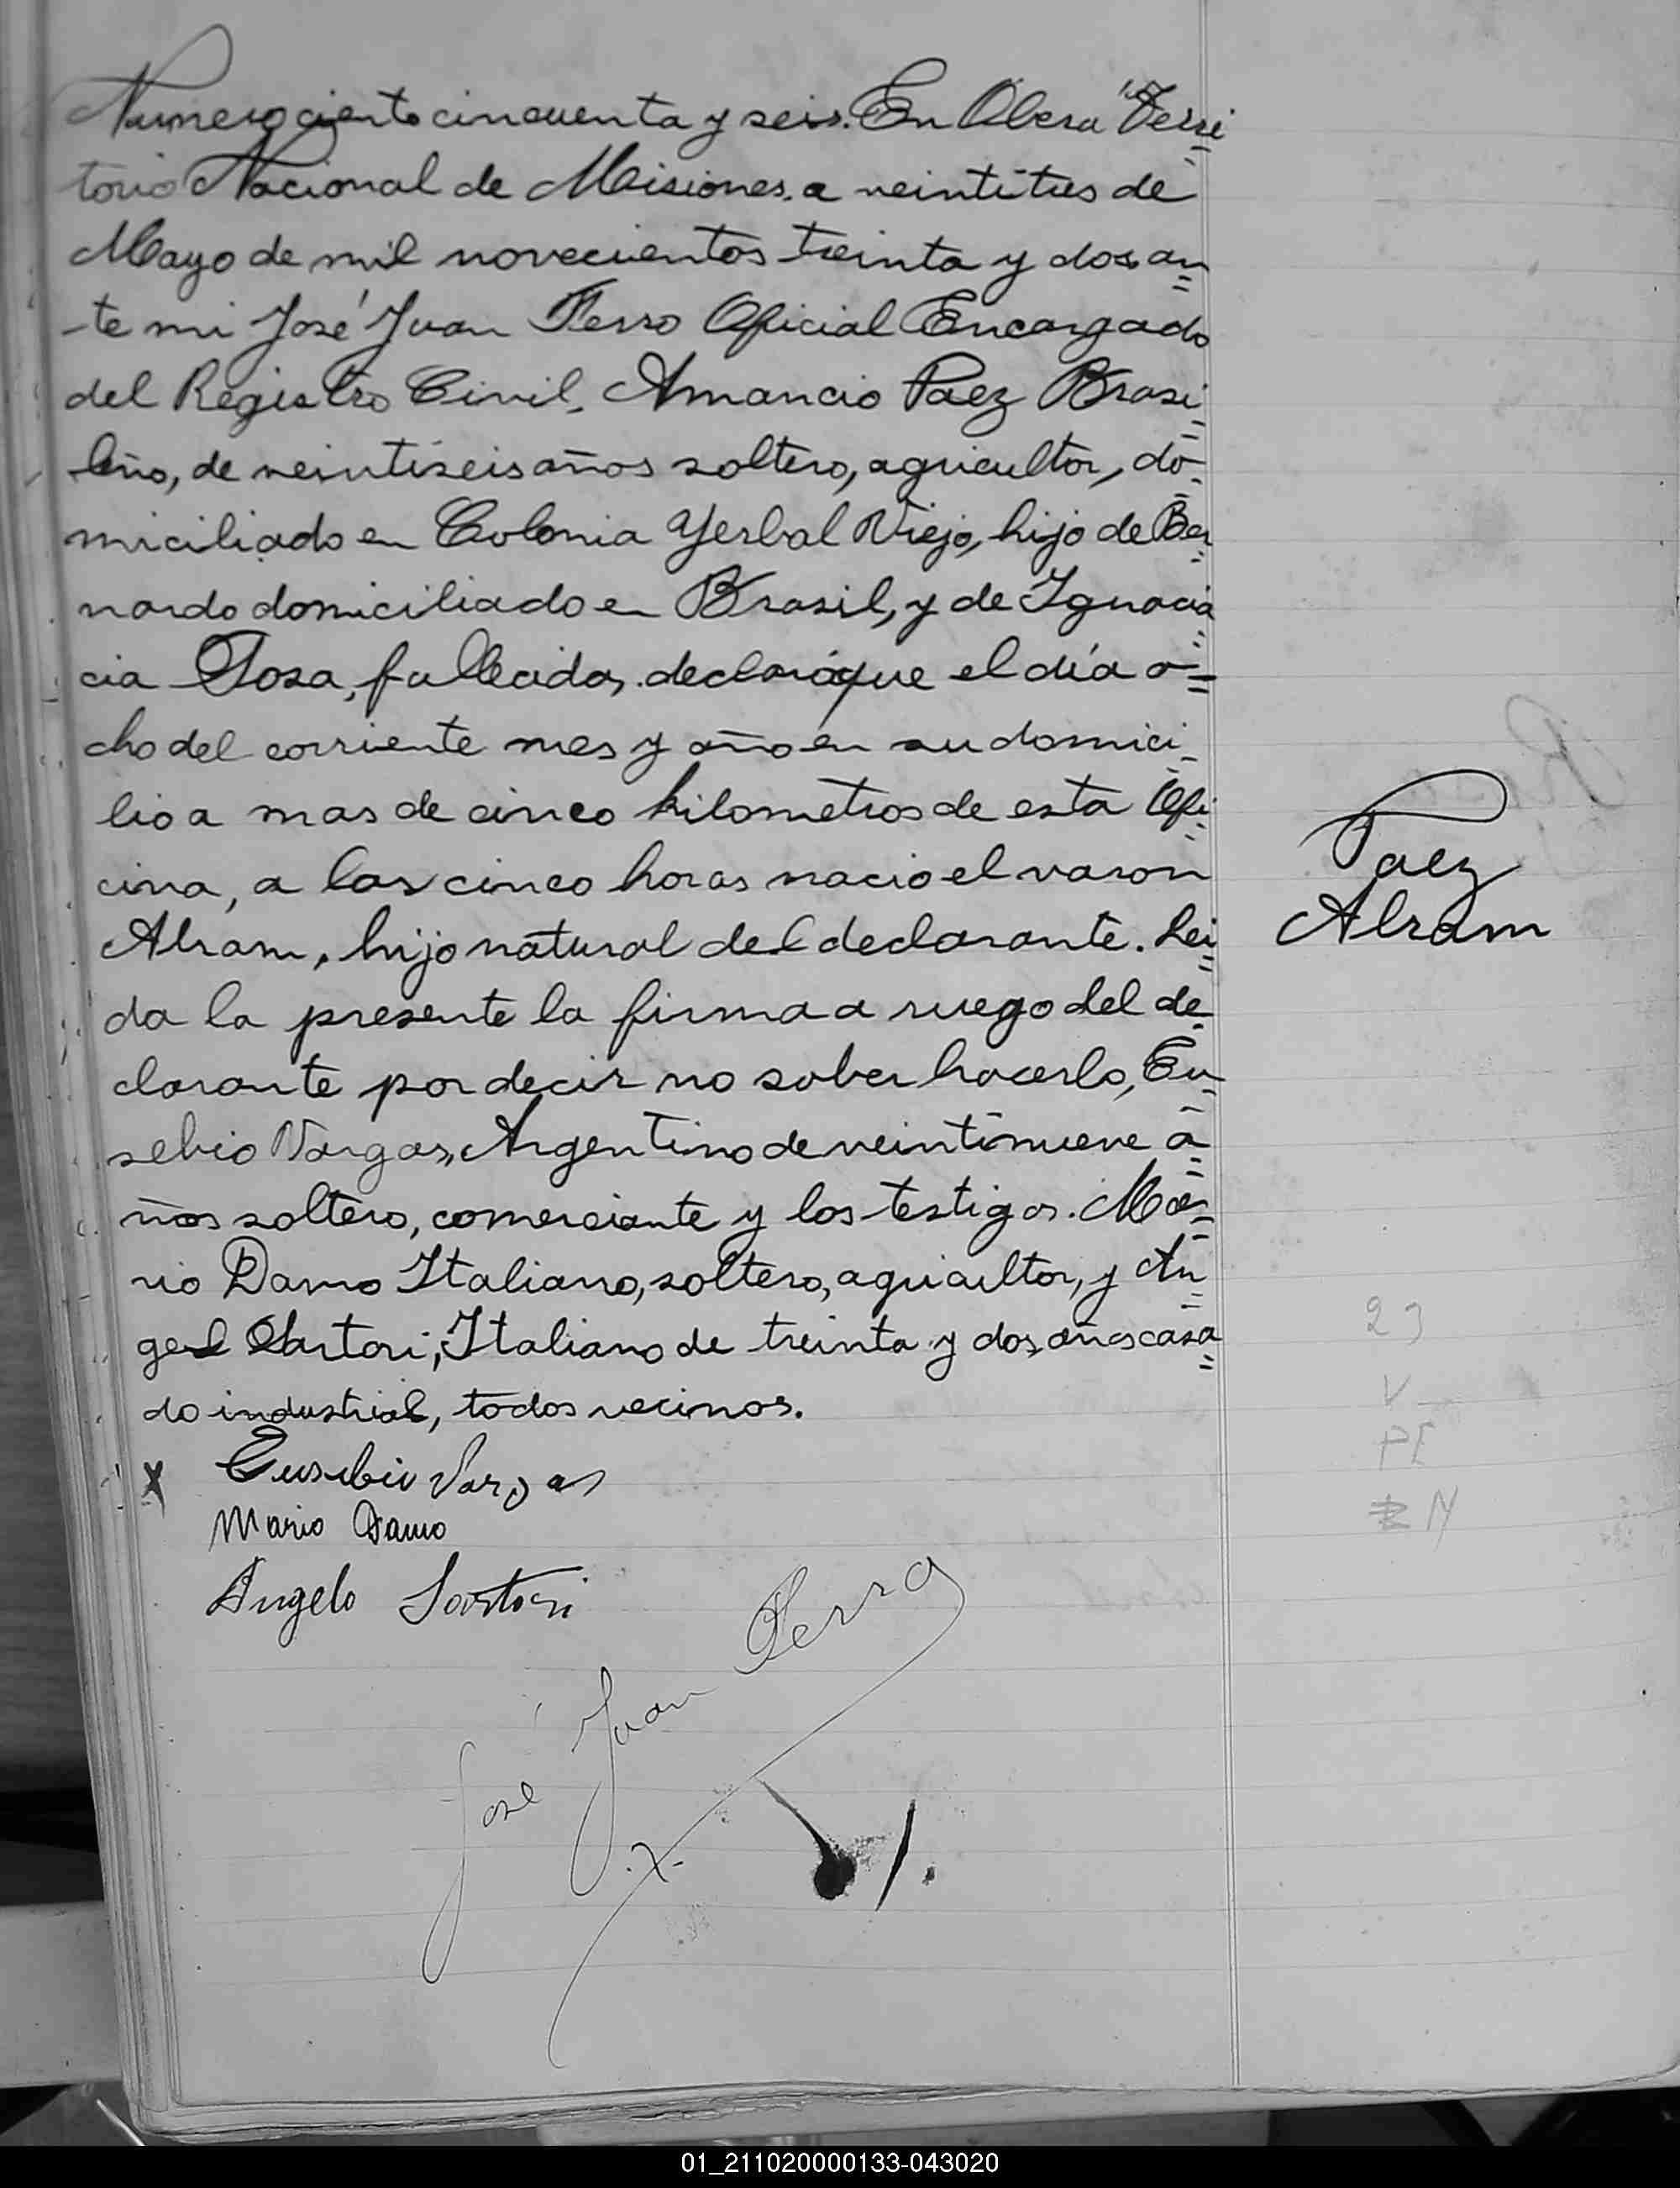 Numero ciento cincuenta y seis. En Oberá Terri
torio Nacional de Misiones, a veintitres de
Mayo de mil novecientos treinta y dos an=
te mi José Juan Ferro Oficial Encargado
del Registro Civil, Amancio Paez Brasi=
leño, de veintiseis años soltero, agricultor, do=
miciliado en Colonia Yerbal Viejo, hijo de Ber=
nardo domiciliado en Brasil, y de Ignacia
cia Sosa, fallecida, declaró que el día o=
cho del corriente mes y año en su domici=
lio a mas de cinco kilometros de esta Ofi=
cina, a las cinco horas nacio el varon
Abram, hijo natural del declarante. Lei=
da la presente la firma a ruego del de=
clarante por decir no saber hacerlo, Eu=
sebio Vargas, Argentino de veintinueve a=
ños soltero, comerciante y los testigos. Ma=
rio Damo Italiano, soltero, agricultor, y An=
gel Sartori, Italiano de treinta y dos años casa=
do industrial, todos vecinos.
Paez
Abram
x Eusebio Vargas
Mario Damo
Angelo Sartori
José Juan Ferro
23
V
PE
N
01_211020000133-043020